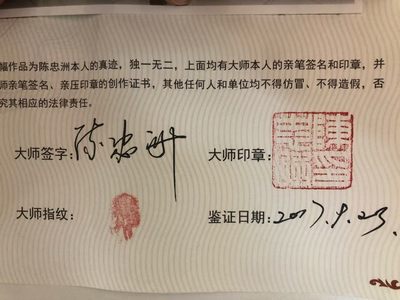 幅作品为陈忠洲本人的真迹，独一无二，上面均有大师本人的亲笔签名和印章，并
师亲笔签名、亲压印章的创作证书，其他任何人和单位均不得仿冒、不得造假，否
究其相应的法律责任。
大师签字：陈忠洲 大师印章：
大师指纹： 鉴证日期：2017.9.23.